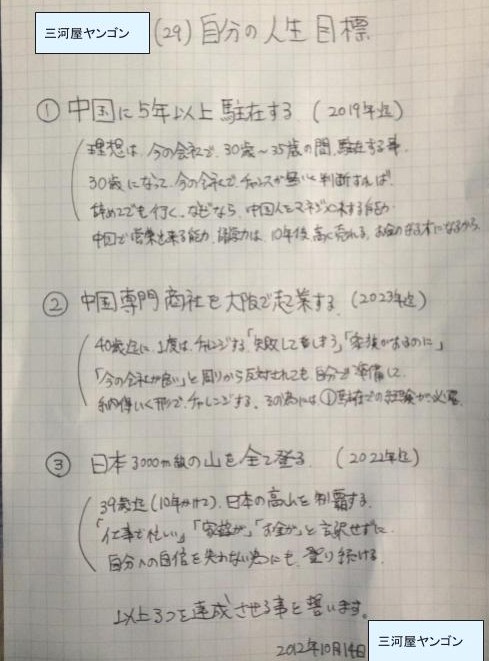 三河屋ヤンゴン
(29) 自分の人生目標
① 中国に5年以上駐在する (2019年迄)
理想は、今の会社で、30歳～35歳の間、駐在する事。
30歳になって、今の会社で、チャンスが無いと判断すれば、
辞めてでも行く。なぜなら、中国人をマネジメントする能力、
中国で営業出来る能力、語学力は、10年後、高く売れる。お金の材料になるから。
② 中国専門商社を大阪で起業する (2023年迄)
40歳迄に、1度は、チャレンジする「失敗してもしまう」「家族がおるのに」
「今の会社が良い」と周りから反対されても、自分で準備して、
納得いく形で、チャレンジする。その為には①駐在での経験が必要。
③ 日本3000m級の山を全て登る (2022年迄)
39歳迄(10年かけて)、日本の高山を制覇する。
「仕事で忙しい」「家族が」「お金が」と言訳せずに、
自分への自信を失わない為にも、登り続ける。
以上3つを達成させる事を誓います。
2012年10月14日
三河屋ヤンゴン